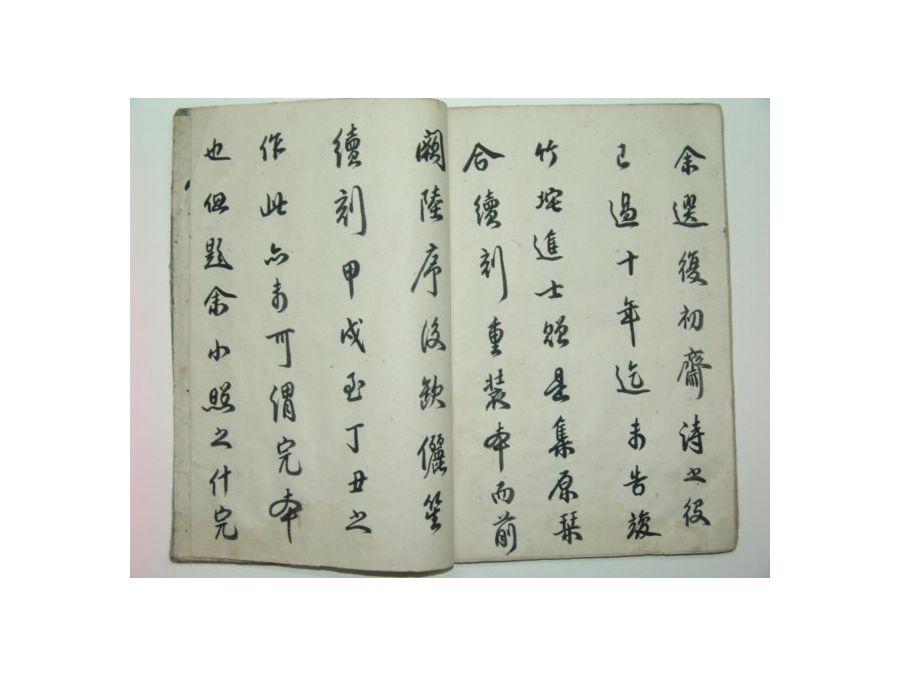 余選復初齋詩之役
已過十年迄未告竣
竹垞進士貽是集原槧
合續刻重裝本而前
闕陸序後欽儷笙
續刻甲戌至丁丑之
作此亦未可謂完本
也但題余小照之什完